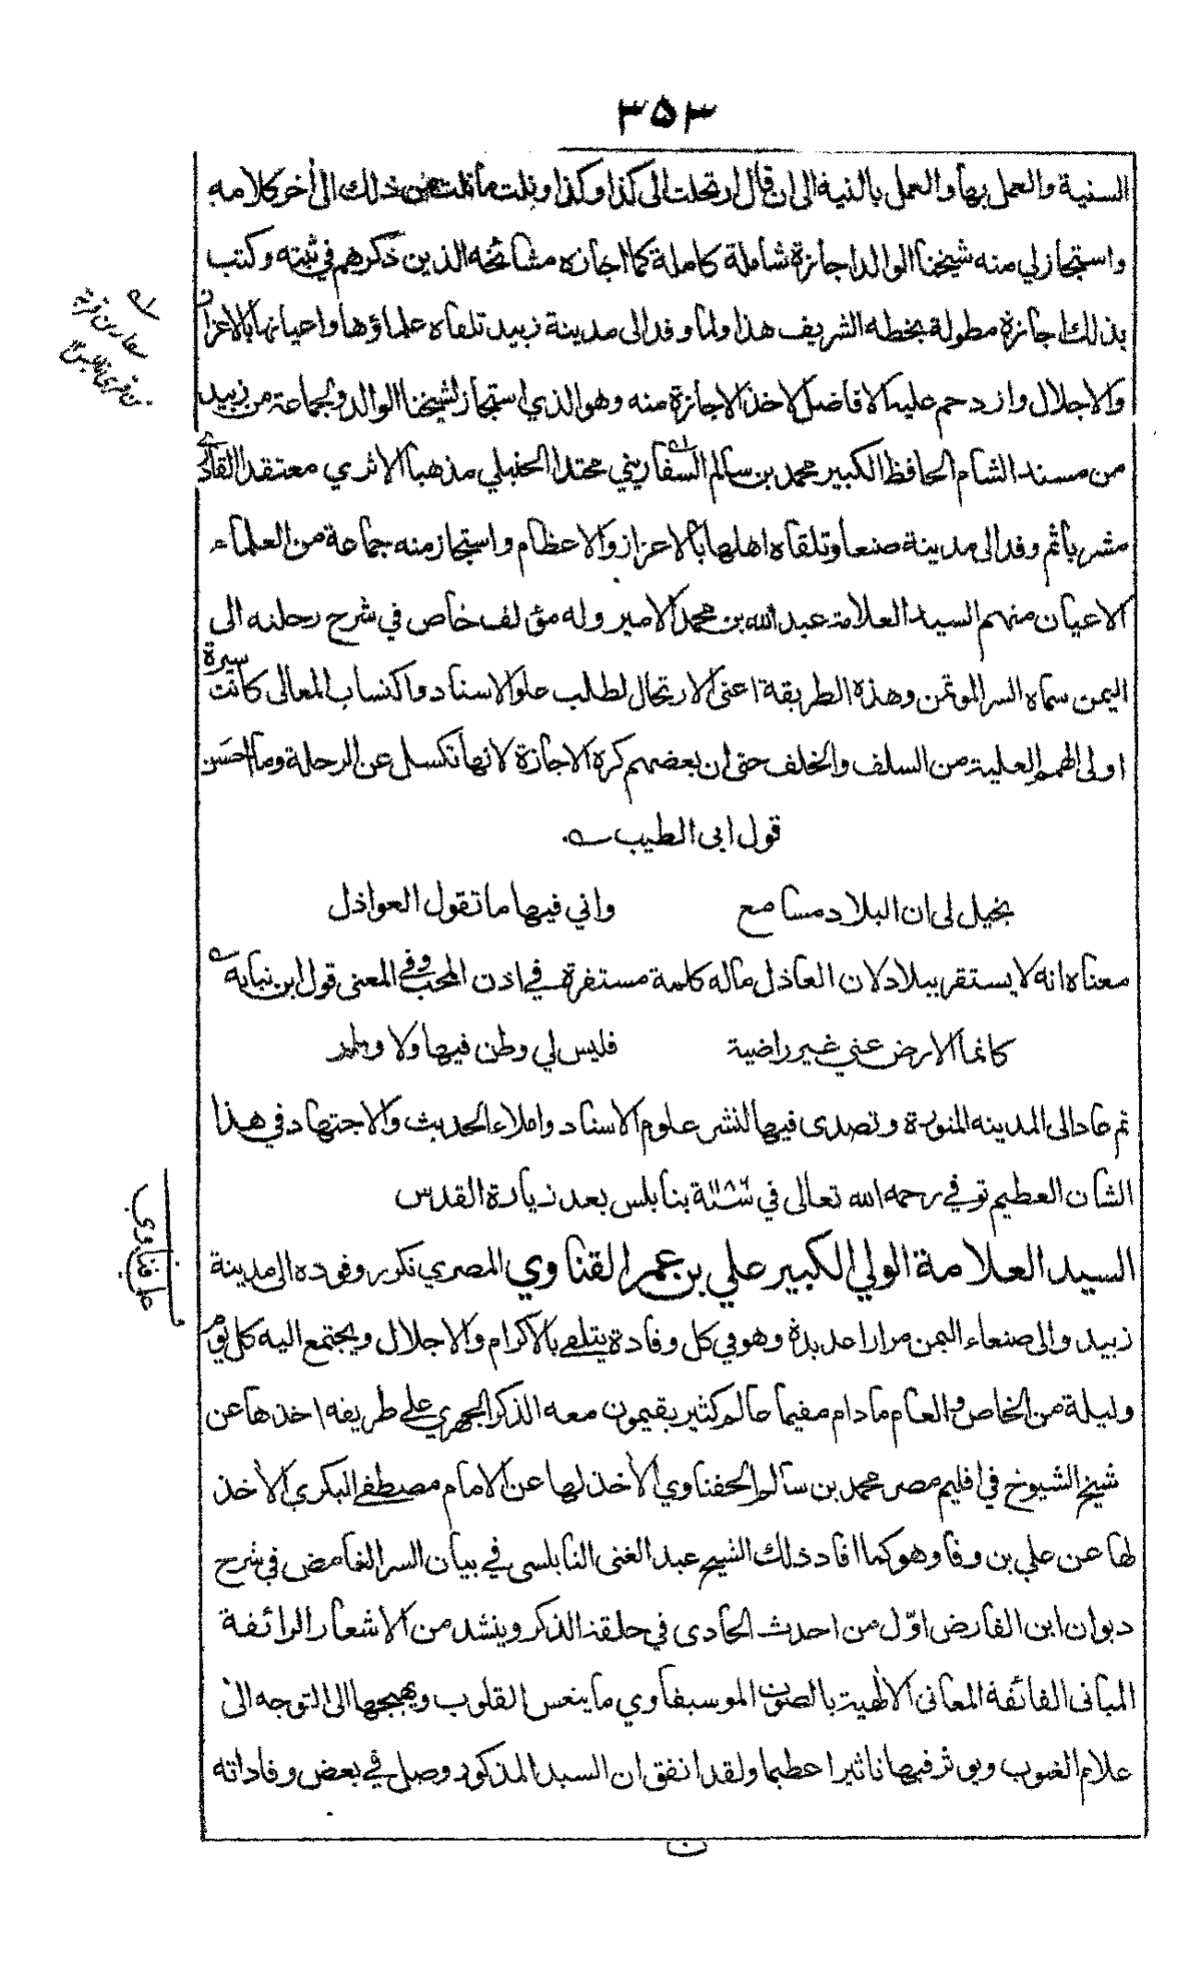 ٣٥٣
السنية والعمل بها والعمل بالنية الى ان قال ارتحلت الى كذا وكذا ونلت ما نلت من ذلك الى أخر كلامه
واستجاز لي منه شيخنا الوالد اجازة شاملة كاملة كما اجازه مشائخه الذين ذكرهم في ثبته وكتب
بذلك اجازة مطولة بخطه الشريف هذا ولما وفد الى مدينة زبيد تلقاه علماؤها واعيانها بالاعزاز
والاجلال وازدحم عليه الافاضل لاخذ الاجازة منه وهو الذي استجاز لشيخنا الوالد ولجماعة من زبيد
من مسند الشام الحافظ الكبير محمد بن سالم السفاريني محتدا الحنبلي مذهبا الاثري معتقدا القادري
مشربا ثم وفد الى مدينة صنعا وتلقاه اهلها بالاعزاز والاعظام واستجاز منه جماعة من العلماء
الاعيان منهم السيد العلامة عبد الله بن محمد الامير وله مؤلف خاص في شرح رحلته الى
اليمن سماه السر المؤتمن وهذه الطريقة اعنى الارتحال لطلب علو الاسناد واكتساب المعالى كانت سيرة
اولى الهمم العلية من السلف والخلف حتى ان بعضهم كره الاجازة لانها تكسل عن الرحلة وما احسن
قول ابى الطيب
يخيل لى ان البلاد مسامع واني فيها ما تقول العواذل
معناه انه لا يستقر ببلاد لان العاذل ماله كلمة مستقرة في اذن المحب وفي المعنى قول ابن نباته
كانما الارض عني غير راضية فليس لي وطن فيها ولا وطر
ثم عاد الى المدينه المنورة وتصدى فيها لنشر علوم الاسناد واملاء الحديث والاجتهاد في هذا
الشان العظيم توفي رحمه الله تعالى في سنة بنابلس بعد زيارة القدس
السيد العلامة الولي الكبير علي بن عمر القناوي المصري تكرر وفوده الى مدينة
زبيد والى صنعاء اليمن مرارا عديدة وهو في كل وفادة يتلقى بالاكرام والاجلال ويجتمع اليه كل يوم
وليلة من الخاص والعام ما دام مقيما عالم كثير يقيمون معه الذكر الجهري على طريقه اخذها عن
شيخ الشيوخ في اقليم مصر محمد بن سالم الحفناوي الأخذ لها عن الامام مصطفى البكري الأخذ
لها عن علي بن وفا وهو كما افاد ذلك الشيخ عبد الغنى النابلسي في بيان السر الغامض في شرح
ديوان ابن الفارض اوّل من احدث الحادى في حلقة الذكر وينشد من الاشعار الرائقة
المبانى الفائقة المعانى الالهية بالصوت الموسيقاوي ما ينعس القلوب ويهيجها الى التوجه الى
علام الغيوب ويوثر فيها تاثيرا عظيما ولقد اتفق ان السيد المذكور وصل في بعض وفاداته
علي قناوي